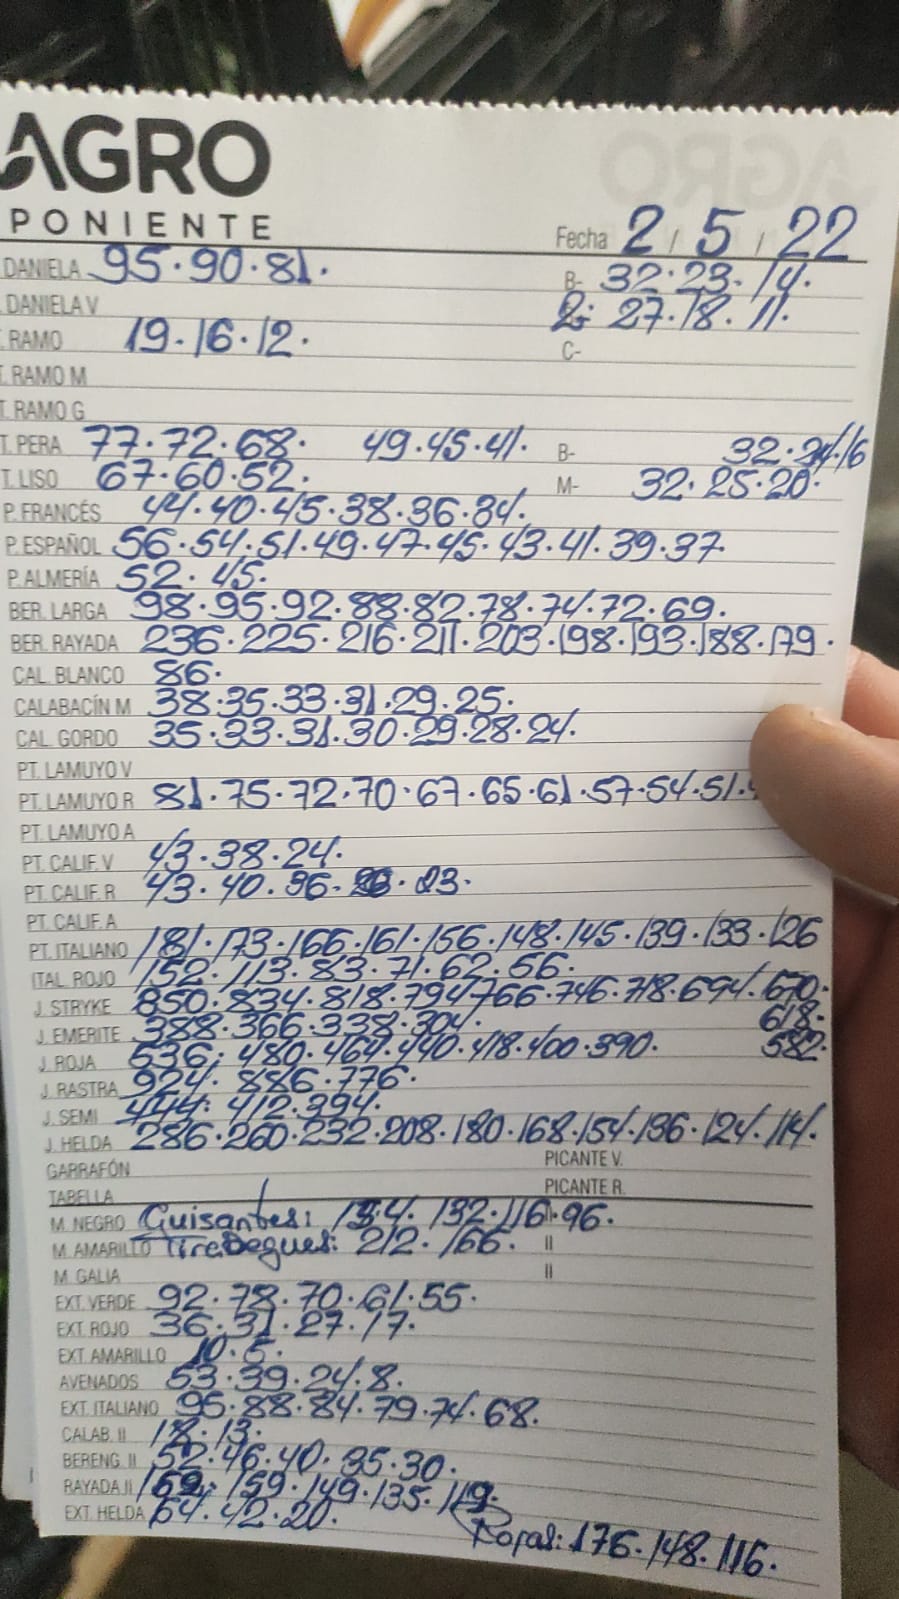 AGRO
PONIENTE
Fecha 2 / 5 / 22
DANIELA 95.90.81. B- 32.23.14.
. DANIELA V 2: 27.18.11.
. RAMO 19.16.12. C-
T. RAMO M
T. RAMO G
T. PERA 77.72.68. 49.45.41. B- 32.24.16
T. LISO 67.60.52. M- 32.25.20.
P. FRANCÉS 44.40.45.38.36.34.
P. ESPAÑOL 56.54.51.49.47.45.43.41.39.37.
P. ALMERÍA 52.45.
BER. LARGA 98.95.92.88.82.78.74.72.69.
BER. RAYADA 236.225.216.211.203.198.193.188.179.
CAL. BLANCO 86.
CALABACÍN M 38.35.33.31.29.25.
CAL. GORDO 35.33.31.30.29.28.24.
PT. LAMUYO V
PT. LAMUYO R 81.75.72.70.67.65.61.57.54.51.
PT. LAMUYO A
PT. CALIF. V 43.38.24.
PT. CALIF. R 43.40.36. 23.
PT. CALIF. A
PT. ITALIANO 181.173.166.161.156.148.145.139.133.126
ITAL. ROJO 152.113.83.71.62.56.
J. STRYKE 850.834.818.794.766.746.718.694.670.
J. EMERITE 388.366.338.304. 618.
J. ROJA 536.480.464.440.418.400.390. 582.
J. RASTRA 924.886.776.
J. SEMI 444.412.394.
J. HELDA 286.260.232.208.180.168.154.136.124.114.
GARRAFÓN PICANTE V.
TABELLA PICANTE R.
M. NEGRO Guisantes: 132.116.96. II
M. AMARILLO 212.166. II
M. GALIA II
EXT. VERDE 92.78.70.61.55.
EXT. ROJO 36.31.27.17.
EXT. AMARILLO 10.5.
AVENADOS 53.39.24.8.
EXT. ITALIANO 95.88.84.79.74.68.
CALAB. II 18.13.
BERENG. II 52.46.40.35.30.
RAYADA II 159.149.135.119.
EXT. HELDA 64.42.20.
Rojas: 176.148.116.